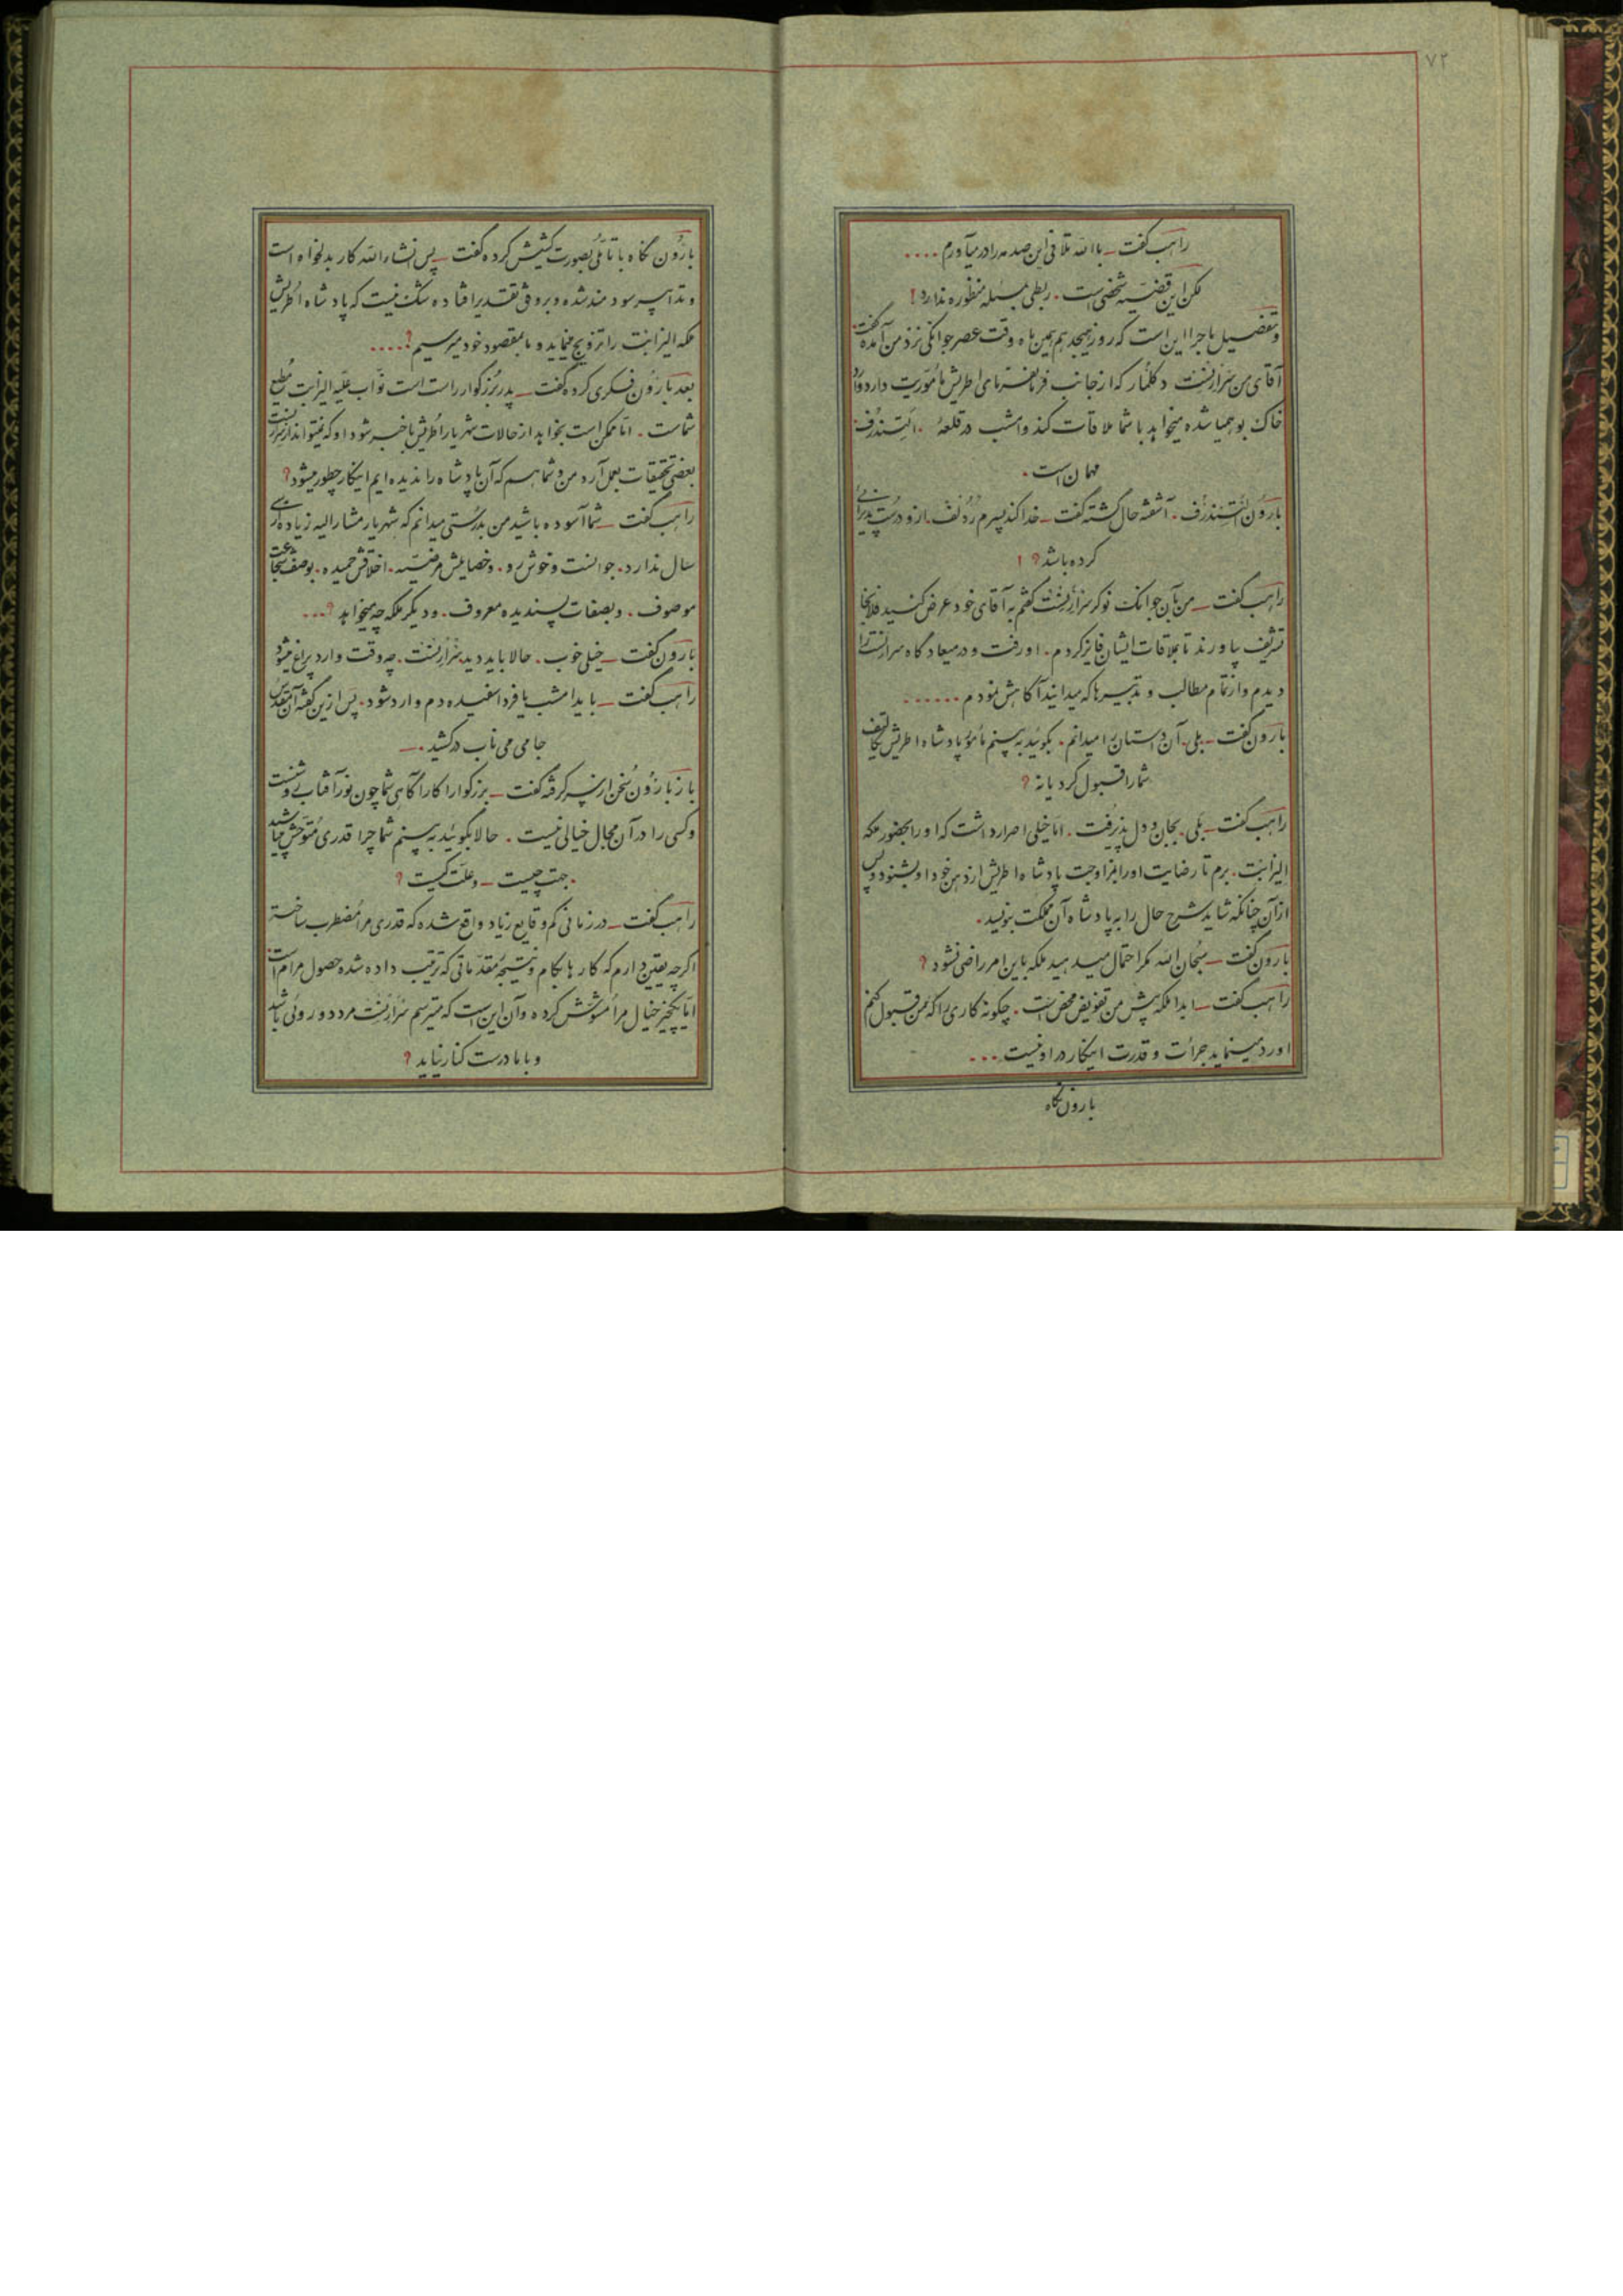 ۷۲
راهب گفت ــ باالله تلافی این صدمه را در میآورم ....
لکن این قضیه شخصی است . ربطی بمسئله منظوره ندارد !
و تفصیل ماجرا این است که روز هیجدهم همین ماه وقت عصر جوانکی نزد من آمده گفت
آقای من سرارنست دکلنار که از جانب فرمانفرمای اطریش مأموریت دارد وارد
خاک بوهمیا شده میخواهد با شما ملاقات کند و امشب در قلعهٔ . التندرف
مهمان است .
بارون التندرف . آشفته حال گشته گفت ــ خدا کند پسرم ردلف . از او درست پذیرائی
کرده باشد ؟ !
راهب گفت ــ من بآن جوانک نوکر سرارنست گفتم به آقای خود عرض کنید فلانجا
تشریف بیاورند تا بملاقات ایشان فایز کردم . او رفت و در میعادگاه سرارنست را
دیدم و از تمام مطالب و تدبیرها که میدانید آگاهش نمودم ......
بارون گفت ــ بلی . آن داستان را میدانم . بگوئید به بینم مأمور پادشاه اطریش تکالیف
شما را قبول کرد یا نه ؟
راهب گفت ــ بلی . بجان و دل پذیرفت . اما خیلی اصرار داشت که او را بحضور ملکه
الیزابت . برم تا رضایت او را بمزاوجت پادشاه اطریش از دهن خود او بشنود و پس
از آن چنانکه شاید شرح حال را به پادشاه آن مملکت بنویسد .
بارون گفت ــ سبحان الله مگر احتمال میدهید ملکه باین امر راضی نشود ؟
راهب گفت ــ ابدا ملکه پیش من تفویض محض است . چگونه کاری را که من قبول کنم
او رد مینماید جرأت و قدرت اینکار در او نیست ...
بارون نگاه
بارون نگاه با تأملی بصورت کشیش کرده گفت ــ پس انشاءالله کار بدلخواه است
و تدابیر سودمند شده و بر وفق تقدیر افتاده شک نیست که پادشاه اطریش
ملکه الیزابت را تزویج مینماید و ما بمقصود خود میرسیم ! ....
بعد بارون فکری کرده گفت ــ پدر بزرگوار راست است نواب علیه الیزابت مطیع
شماست . اما ممکن است بخواهد از حالات شهریار اطریش باخبر شود او که نمیتواند از سرارنست
بعضی تحقیقات بعمل آرد من و شما هم که آن پادشاه را ندیده ایم اینکار چطور میشود ؟
راهب گفت ــ شما آسوده باشید من بدرستی میدانم که شهریار مشارالیه زیاده از سی
سال ندارد . جوانست و خوش رو . و خصایلش مرضیه . اخلاقش حمیده . بوصف شجاعت
موصوف . و بصفات پسندیده معروف . و دیگر ملکه چه میخواهد ؟ ...
بارون گفت ــ خیلی خوب . حالا باید دید سرارنست . چه وقت وارد پراغ میشود
راهب گفت ــ باید امشب یا فردا سفیده دم وارد شود . پس از این گفته آن مقدس
جامی می ناب درکشید . ــ
باز بارون سخن از سر گرفته گفت ــ بزرگوارا کارآگاهی شما چون نور آفتاب روشنست
و کسی را در آن مجال خیالی نیست . حالا بگوئید به بینم شما چرا قدری متوحش میباشید
. جهت چیست ــ و علت کیست ؟
راهب گفت ــ در زمانی کم وقایع زیاد واقع شده که قدری مرا مضطرب ساخته
اگر چه یقین دارم که کارها بکام و نتیجهٔ مقدماتی که ترتیب داده شده حصول مرام است
اما یکچیز خیال مرا مشوش کرده و آن این است که میترسم سرارنست مرد دوروئی باشد
و با ما درست کنار نیاید ؟